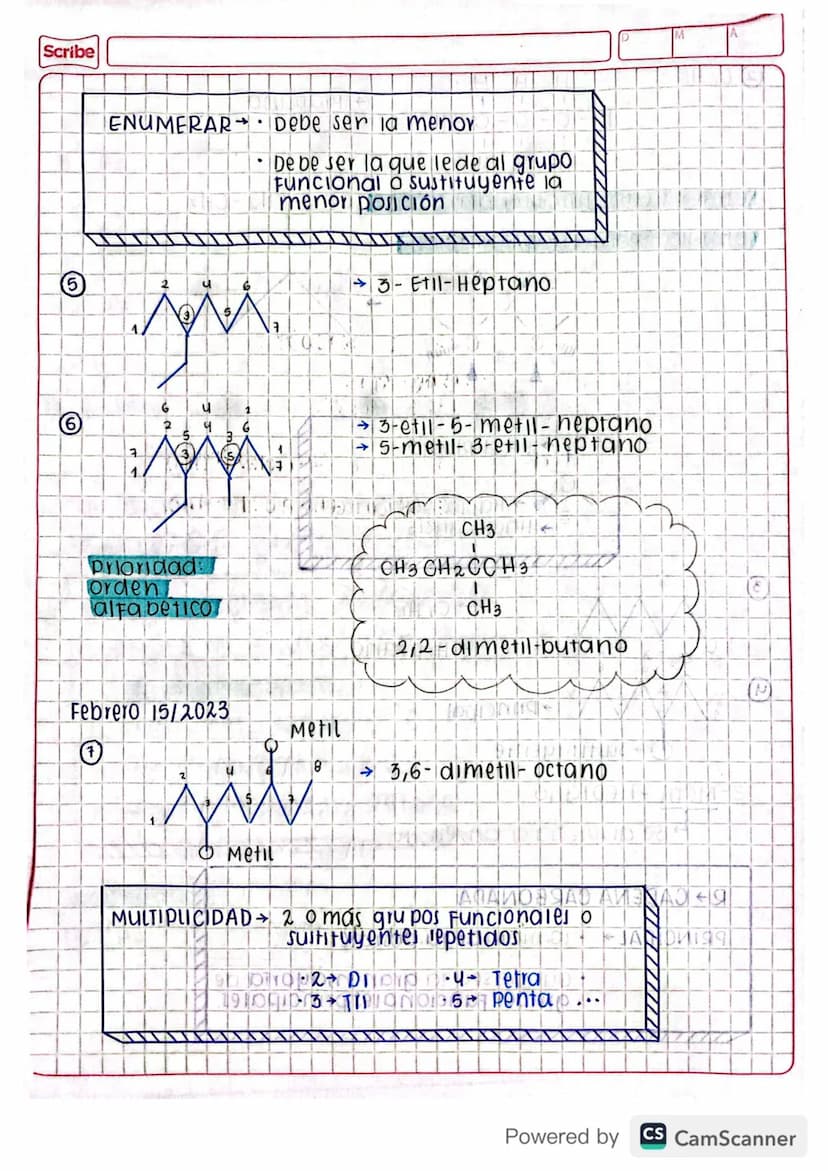 Scribe
D M A
ENUMERAR → · Debe ser la menor
· Debe ser la que le de al grupo
funcional o sustituyente la
menor posición
5
2 4 6
→ 3-Etil-Heptano
1 3 5 7
6
6 4 2
2 5 4 3 6
→ 3-etil-5-metil-heptano
→ 5-metil-3-etil-heptano
7 3 5 1
1 7
CH3
CH3CH2CCH3
CH3
2,2-dimetil-butano
prioridad:
orden
alfabético
Febrero 15/2023
7
Metil
2 4 6 8
→ 3,6-dimetil-octano
1 3 5 7
Metil
MULTIPLICIDAD → 2 o más grupos funcionales o
sustituyentes repetidos
·2→ Di ·4→ Tetra
·3→ Tri ·5→ Penta ...
Powered by CS CamScanner